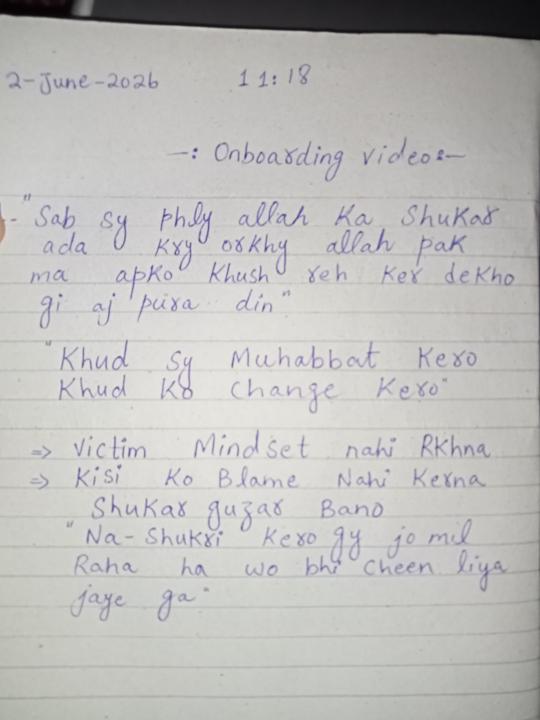 2-June-2026 11:18
-: Onboarding video:-
- "Sab sy phly allah Ka Shukar
ada kry orkhy allah pak
ma apko khush reh ker dekho
gi aj pura din"
"Khud sy Muhabbat Kero
Khud Ko Change Kero"
⇒ Victim Mindset nahi RKhna
⇒ Kisi Ko Blame Nahi Kerna
Shukar guzar Bano
"Na-Shukri Kero gy jo mil
Raha ha wo bhi cheen liya
jaye ga"